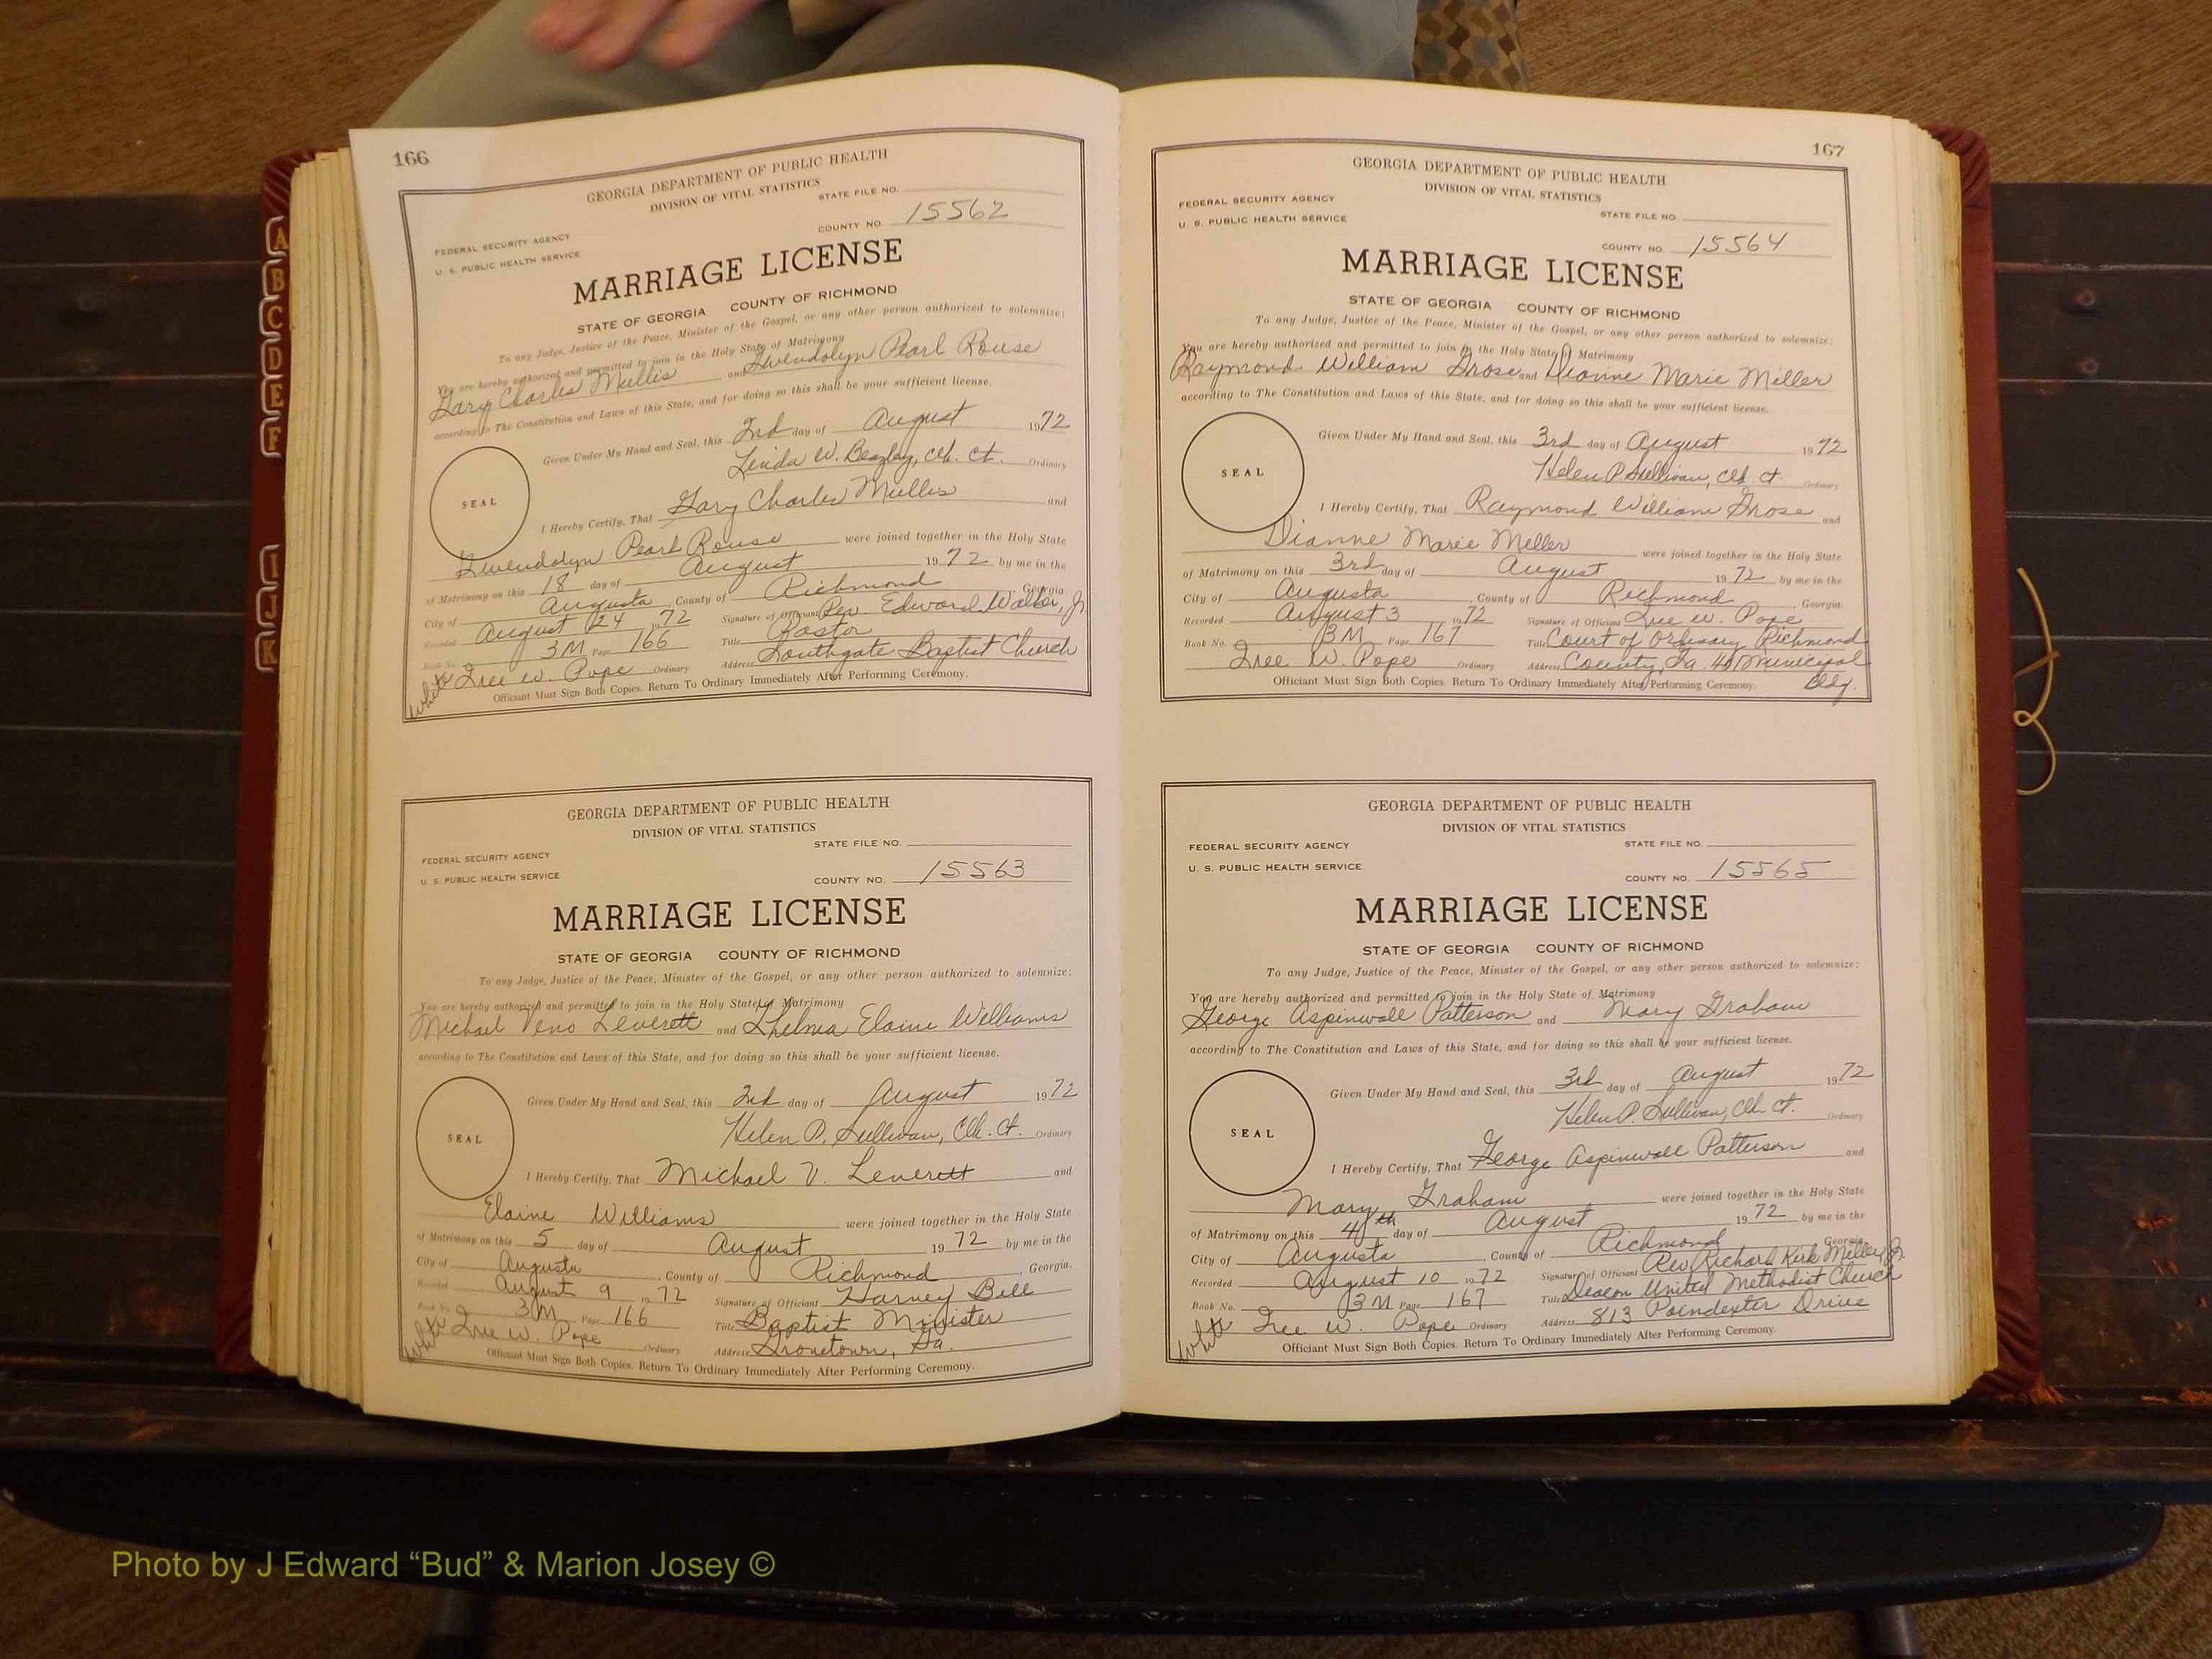 166
GEORGIA DEPARTMENT OF PUBLIC HEALTH
DIVISION OF VITAL STATISTICS
STATE FILE NO.
COUNTY NO. 15562
FEDERAL SECURITY AGENCY
U. S. PUBLIC HEALTH SERVICE
MARRIAGE LICENSE
STATE OF GEORGIA COUNTY OF RICHMOND
To any Judge, Justice of the Peace, Minister of the Gospel, or any other person authorized to solemnize:
You are hereby authorized and permitted to join in the Holy State of Matrimony
Gary Charles Mullis and Gwendolyn Pearl Rouse
according to The Constitution and Laws of this State, and for doing so this shall be your sufficient license.
Given Under My Hand and Seal, this 2nd day of August 1972
Linda W. Beazley, Clk. Ct. Ordinary
SEAL
I Hereby Certify, That Gary Charles Mullis and
Gwendolyn Pearl Rouse were joined together in the Holy State
of Matrimony on this 18 day of August 1972 by me in the
City of Augusta, County of Richmond, Georgia.
Recorded August 24 1972 Signature of Officiant Rev. Edward Walker, Jr
Book No. 3M Page 166 Title Pastor
Iree W. Pope Ordinary Address Southgate Baptist Church
White
Officiant Must Sign Both Copies. Return To Ordinary Immediately After Performing Ceremony.
GEORGIA DEPARTMENT OF PUBLIC HEALTH
DIVISION OF VITAL STATISTICS
STATE FILE NO.
FEDERAL SECURITY AGENCY
U. S. PUBLIC HEALTH SERVICE
COUNTY NO. 15563
MARRIAGE LICENSE
STATE OF GEORGIA COUNTY OF RICHMOND
To any Judge, Justice of the Peace, Minister of the Gospel, or any other person authorized to solemnize:
You are hereby authorized and permitted to join in the Holy State of Matrimony
Michael Veno Leverett and Thelma Elaine Williams
according to The Constitution and Laws of this State, and for doing so this shall be your sufficient license.
Given Under My Hand and Seal, this 2nd day of August 1972
Helen P. Sullivan, Clk. Ct. Ordinary
SEAL
I Hereby Certify, That Michael V. Leverett and
Elaine Williams were joined together in the Holy State
of Matrimony on this 5 day of August 1972 by me in the
City of Augusta, County of Richmond, Georgia.
Recorded August 9 1972 Signature of Officiant Harney Bell
Book No. 3M Page 166 Title Baptist Minister
Iree W. Pope Ordinary Address Grovetown, Ga.
White
Officiant Must Sign Both Copies. Return To Ordinary Immediately After Performing Ceremony.
167
GEORGIA DEPARTMENT OF PUBLIC HEALTH
DIVISION OF VITAL STATISTICS
FEDERAL SECURITY AGENCY
U. S. PUBLIC HEALTH SERVICE
STATE FILE NO.
COUNTY NO. 15564
MARRIAGE LICENSE
STATE OF GEORGIA COUNTY OF RICHMOND
To any Judge, Justice of the Peace, Minister of the Gospel, or any other person authorized to solemnize:
You are hereby authorized and permitted to join in the Holy State of Matrimony
Raymond William Grose and Dianne Marie Miller
according to The Constitution and Laws of this State, and for doing so this shall be your sufficient license.
Given Under My Hand and Seal, this 3rd day of August 1972
Helen P. Sullivan, Clk. Ct. Ordinary
SEAL
I Hereby Certify, That Raymond William Grose and
Dianne Marie Miller were joined together in the Holy State
of Matrimony on this 3rd day of August 1972 by me in the
City of Augusta, County of Richmond, Georgia.
Recorded August 3 1972 Signature of Officiant Iree W. Pope
Book No. 3M Page 167 Title Court of Ordinary Richmond
Iree W. Pope Ordinary Address County, Ga. 401 Municipal
Bldg.
Officiant Must Sign Both Copies. Return To Ordinary Immediately After Performing Ceremony.
GEORGIA DEPARTMENT OF PUBLIC HEALTH
DIVISION OF VITAL STATISTICS
FEDERAL SECURITY AGENCY
U. S. PUBLIC HEALTH SERVICE
STATE FILE NO.
COUNTY NO. 15565
MARRIAGE LICENSE
STATE OF GEORGIA COUNTY OF RICHMOND
To any Judge, Justice of the Peace, Minister of the Gospel, or any other person authorized to solemnize:
You are hereby authorized and permitted to join in the Holy State of Matrimony
George Aspinwall Patterson and Mary Graham
according to The Constitution and Laws of this State, and for doing so this shall be your sufficient license.
Given Under My Hand and Seal, this 3rd day of August 1972
Helen P. Sullivan, Clk. Ct. Ordinary
SEAL
I Hereby Certify, That George Aspinwall Patterson and
Mary Graham were joined together in the Holy State
of Matrimony on this 4th day of August 1972 by me in the
City of Augusta, County of Richmond, Georgia.
Recorded August 10 1972 Signature of Officiant Rev Richard Kirk Miller, Jr.
Book No. 3M Page 167 Title Deacon United Methodist Church
Iree W. Pope Ordinary Address 813 Poindexter Drive
White
Officiant Must Sign Both Copies. Return To Ordinary Immediately After Performing Ceremony.
A
B
C
D
E
F
I
J
K
Photo by J Edward “Bud” & Marion Josey ©